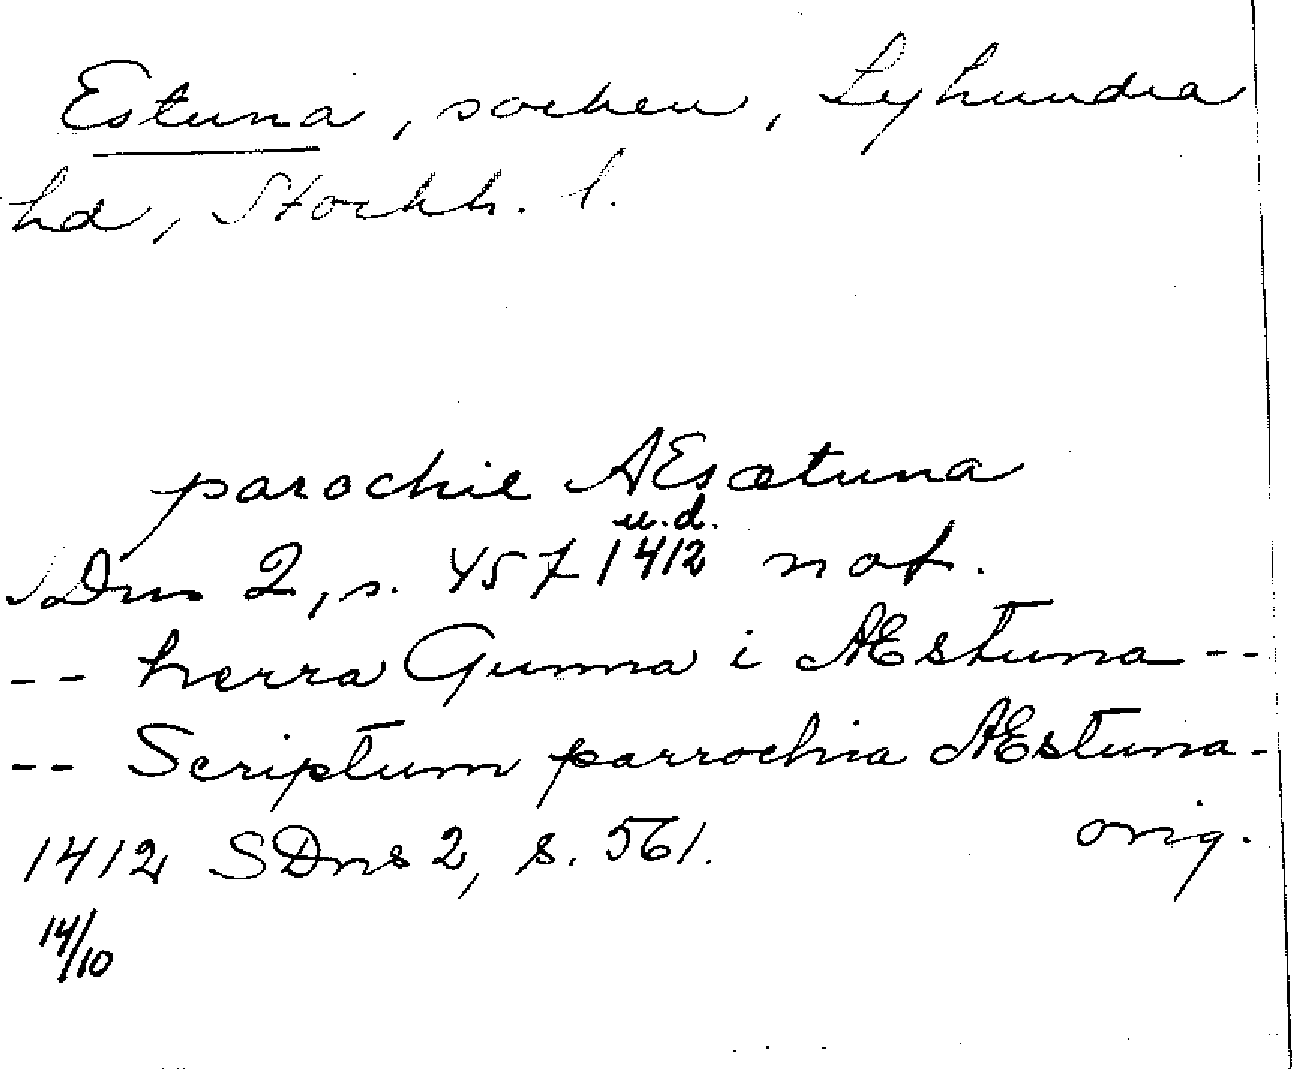 Estuna, socken, Lyhundra
hd, Stockh. l.
parochie AEsætuna
u.d.
SDns 2, s. 457 1412 not.
-- herra Gunna i AEstuna --
-- Scriptum parrochia AEstuna -
1412 SDns 2, s. 561. orig.
14/10